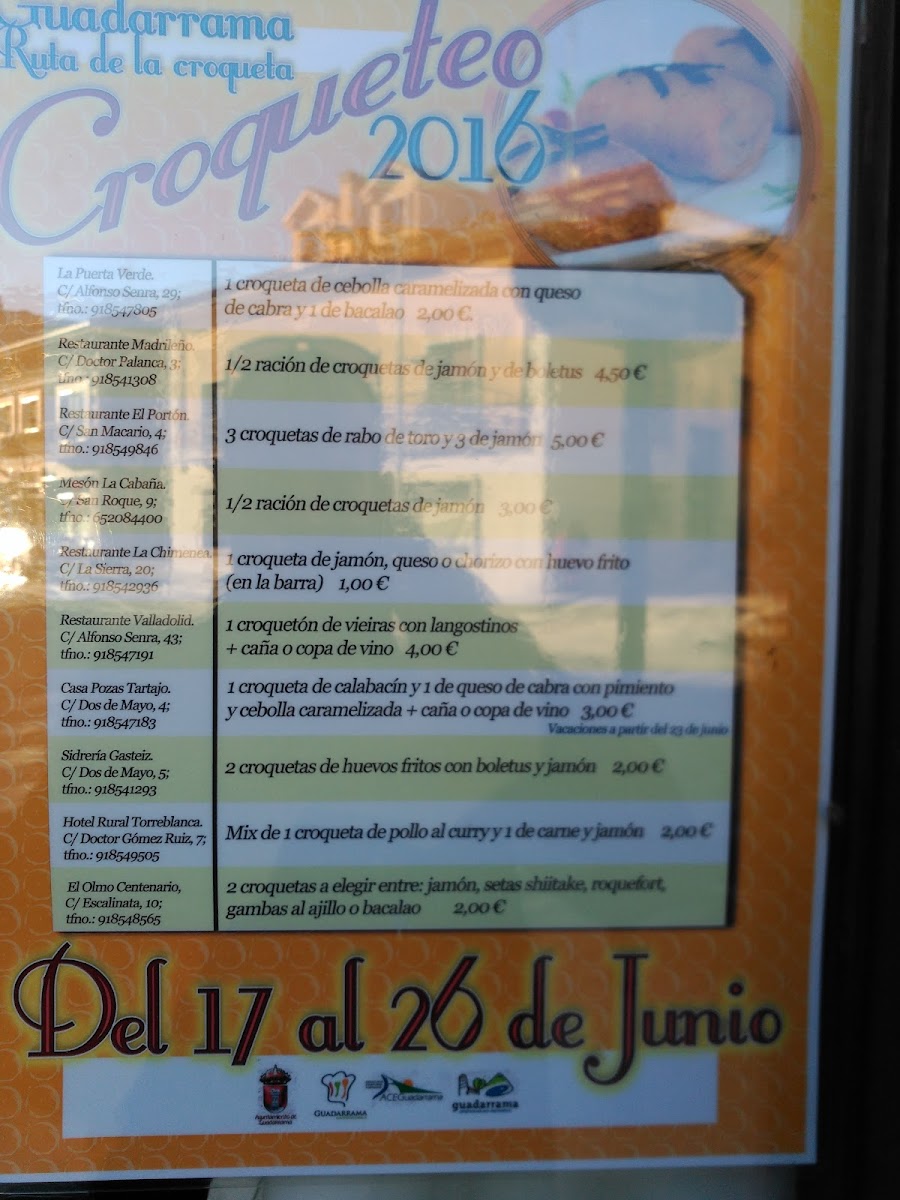 Guadarrama
Ruta de la croqueta
Croqueteo
2016
La Puerta Verde.
C/ Alfonso Senra, 29;
tfno.: 918547805
1 croqueta de cebolla caramelizada con queso
de cabra y 1 de bacalao 2,00 €.
Restaurante Madrileño.
C/ Doctor Palanca, 3;
tfno.: 918541308
1/2 ración de croquetas de jamón y de boletus 4,50 €
Restaurante El Portón.
C/ San Macario, 4;
tfno.: 918549846
3 croquetas de rabo de toro y 3 de jamón 5,00 €
Mesón La Cabaña.
C/ San Roque, 9;
tfno.: 652084400
1/2 ración de croquetas de jamón 3,00 €
Restaurante La Chimenea.
C/ La Sierra, 20;
tfno.: 918542936
1 croqueta de jamón, queso o chorizo con huevo frito
(en la barra) 1,00 €
Restaurante Valladolid.
C/ Alfonso Senra, 43;
tfno.: 918547191
1 croquetón de vieiras con langostinos
+ caña o copa de vino 4,00 €
Casa Pozas Tartajo.
C/ Dos de Mayo, 4;
tfno.: 918547183
1 croqueta de calabacín y 1 de queso de cabra con pimiento
y cebolla caramelizada + caña o copa de vino 3,00 €
Vacaciones a partir del 23 de junio
Sidrería Gasteiz.
C/ Dos de Mayo, 5;
tfno.: 918541293
2 croquetas de huevos fritos con boletus y jamón 2,00 €
Hotel Rural Torreblanca.
C/ Doctor Gómez Ruiz, 7;
tfno.: 918549505
Mix de 1 croqueta de pollo al curry y 1 de carne y jamón 2,00 €
El Olmo Centenario,
C/ Escalinata, 10;
tfno.: 918548565
2 croquetas a elegir entre: jamón, setas shiitake, roquefort,
gambas al ajillo o bacalao 2,00 €
Del 17 al 26 de Junio
Ayuntamiento de
Guadarrama
GUADARRAMA
ACEGuadarrama
guadarrama